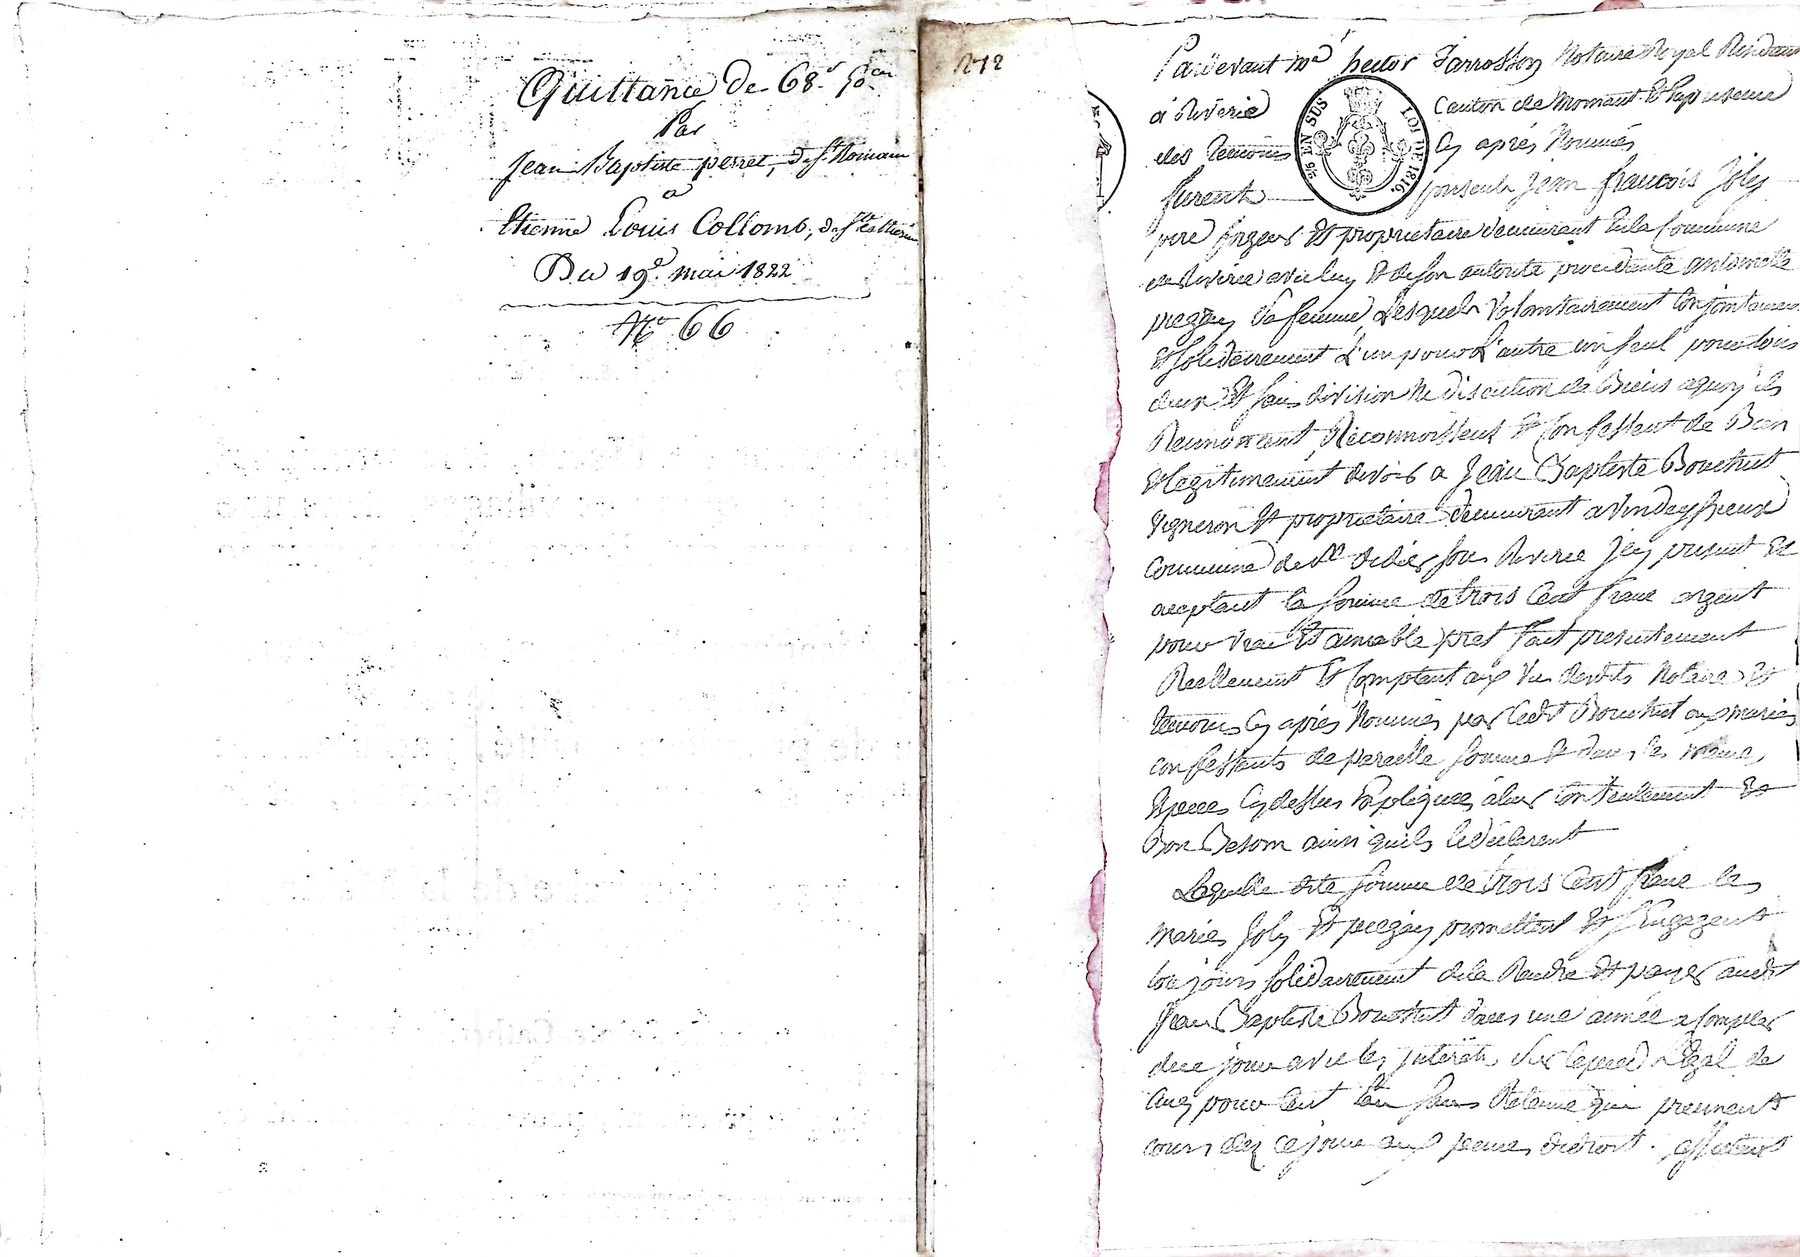 Quittance de 68.f 50.cen
Par
Jean Baptiste perret, de St. Romain
a
Etienne Louis Collomb, de Ste Catherine
Du 19.e mai 1822
N.o 66
272
Pardevant me hector Jarrosson Notaire Royal Residant
à Riverie Canton de Mornant Et En presence
des temoins Cy après Nommés
furent presents Jean francois Joly
EN SUS
LOI DE 1816.
pere et proprietaire demeurant En la Commune
de Riverie avec luy Et de son autorité procedante antoinette
sa femme Lesquels volontairement Conjointement
Et solidairement L'un pour L'autre un seul pour tous
deux Et sans division Ne discution de Biens aquoy ils
Renoncent, Reconnoissent Et Confessent de Bien
Et Legitimement devoir a Jean Baptiste Bouchut
vigneron Et proprietaire demeurant a
Commune de St didier sous Riverie Icy present Et
aceptant la somme de trois Cent franc argent
pour vrai Et amiable pret fait presentement
Reellement Et Comptant aux vu desdits Notaire Et
temoins Cy après Nommés par Ledit Bouchut aux mariés
confessants de pareille somme Et dans les meme
Especes Cydessus Expliquées à leur Contentement Et
Bon Besoin ainsi quils le déclarent
Laquelle dite somme de trois Cent franc les
mariés Joly Et promettent Et s'Engagent
toujours solidairement de la Rendre Et payer audit
Jean Baptiste Bouchut dans une année a Compter
de ce jour avec les Interêts sur le pied Légal de
Cinq pour Cent L'an sans Retenue qui prennent
cours dez ce jour aux peines de droit.